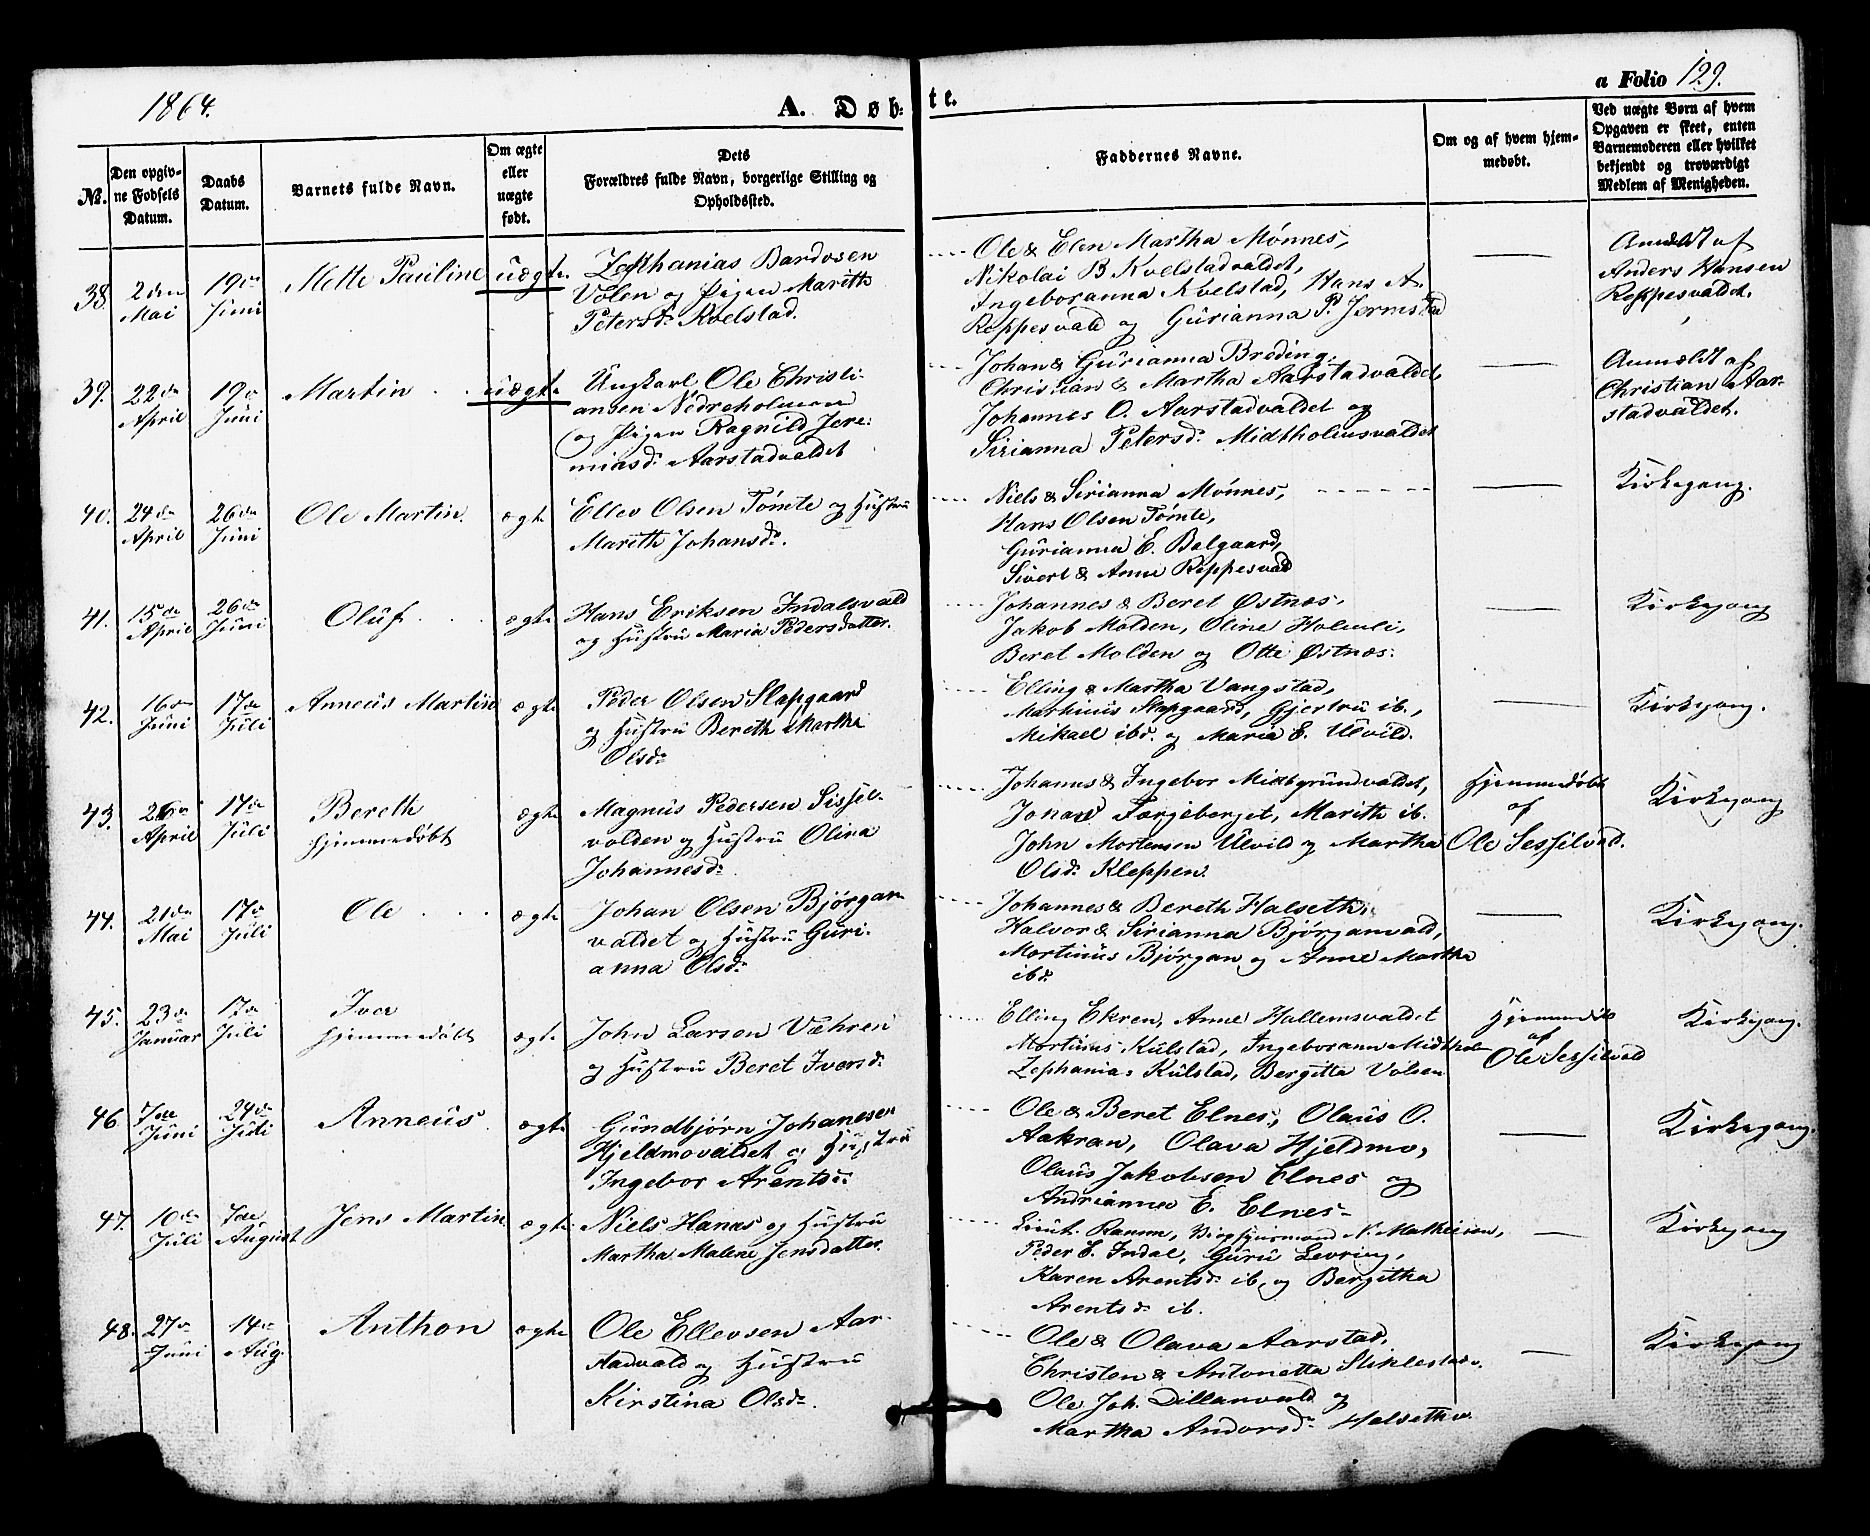 1864.
A. Døb-
te.
a Folio 129.
No.
Den opgiv-
ne Fødsels
Datum.
Daabs
Datum.
Barnets fulde Navn.
Om ægte
eller
uægte
født.
Dets
Forældres fulde Navn, borgerlige Stilling og
Opholdssted.
Faddernes Navne.
Om og af hvem hjem-
medøbt.
Ved uægte Børn af hvem
Opgaven er skeet, enten
Barnemoderen eller hvilket
bekjendt og troværdigt
Medlem af Menigheden.
38.
2den
Mai
19de
Juni
Mette Pauline
uægte
Zephanias Bardosen
Volen og Pigen Marith
Petersd. Kvelstad.
Ole & Elen Martha Mønnes,
Nikolai B Kvelstadvaldet,
Ingeboranna Kvelstad, Hans A.
Roppesvald og Gurianna P.
Anmeldt af
Anders Hansen
Roppesvaldet.
39.
22de
April
19de
Juni
Martin
uægte
Ungkarl Ole Christi-
ansen Nedreholmen
og Pigen Ragnild Jere-
miasd. Aarstadvaldet
Johan & Gurianna Brøding,
Christian & Martha Aarstadvaldet,
Johannes O. Aarstadvaldet og
Sirianna Petersd. Midtholmsvaldet
Anmældt af
Christian Aar-
stadvaldet.
40.
24de
April
26de
Juni
Ole Martin.
ægte
Ellev Olsen Tømte og Hustru
Marith Johansd.
Niels & Sirianna Mønnes,
Hans Olsen Tømte,
Gurianna E. Balgaard,
Sivert & Anne Roppesvald
Kirkegang.
41.
15de
April
26de
Juni
Oluf
ægte
Hans Eriksen Indalsvald
og Hustru Maria Pedersdatter.
Johannes & Beret Østnæs,
Jakob Molden, Oline Holmli,
Beret Molden og Otte Østnæs.
Kirkegang
42.
16de
Juni
17de
Juli
Anneus Martin
ægte
Peder Olsen Slapgaard
og Hustru Bereth Martha
Olsd.
Elling & Martha Vangstad,
Martinus Slapgaard, Gjertru ib.,
Mikael ibd. og Maria E. Ulvild.
Kirkegang.
43.
26de
April
17de
Juli
Bereth
Hjemmedøbt
ægte
Magnus Pedersen Sissel-
volden og Hustru Olina
Johannesd.
Johannes & Ingebor Midtgrundvaldet,
Jonas Færgeberget, Marith ib.
John Mortensen Ulvild og Martha
Olsd. Kleppen.
Hjemmedøbt
af
Ole Sesselvold.
Kirkegang
44.
21de
Mai
17de
Juli
Ole
ægte
Johan Olsen Bjørgan-
valdet og Hustru Guri-
anna Olsd.
Johannes & Bereth Halseth,
Halvor & Sirianna Bjørganvald,
Martinus Bjørgan og Anne Martha
ibd.
Kirkegang.
45.
23de
Januar
17de
Juli
Iver
Hjemmedøbt
ægte
John Larsen Væhren
og Hustru Beret Iversd.
Elling Ekren, Anne Hallemsvaldet
Martinus Kulstad, Ingeborann Midthol
Zephanias Kulstad, Bergitta Volsen
af
Ole Sesselvold
Kirkegang.
46
7de
Juni
24de
Juli
Anneus
ægte
Gundbjørn Johanesen
Hjeldmovaldet og Hustru
Ingebor Arentsd.
Ole & Beret Elnes, Olaus O.
Aakran, Olava Hjeldmo,
Olaus Jakobsen Elnes og
Andrianna E. Elnes-
Kirkegang.
47.
10de
Juli
7de
August
Jens Martin
ægte
Niels Hanas og Hustru
Martha Malene Jensdatter.
Lieut. Ramm, N. Mathiesen,
Peder E. Indal, Guru Levring,
Karen Arentsd. ib. og Bergitha
Arentsd. ib.
Kirkegang
48.
27de
Juni
14de
Aug.
Anthon
ægte
Ole Ellevsen Aar-
stadvald og Hustru
Kirstina Olsd.
Ole & Olava Aarstad,
Christen & Antonetta Stiklestad,
Ole Joh. Dillanvald og
Martha Andorsd. Halseth
Kirkegang